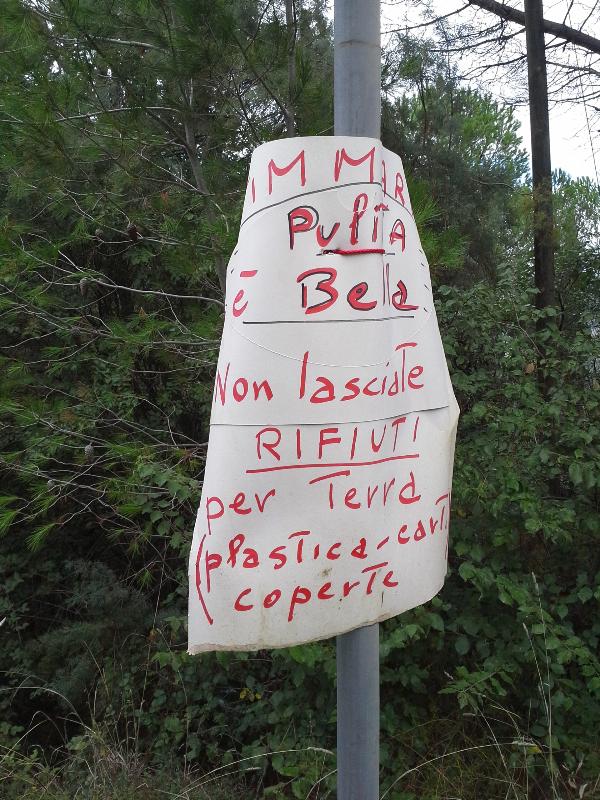 IMMAR
PuliTA
è Bella
Non lasciaTe
RIFIUTI
per Terra
(plasTica-carT
coperTe